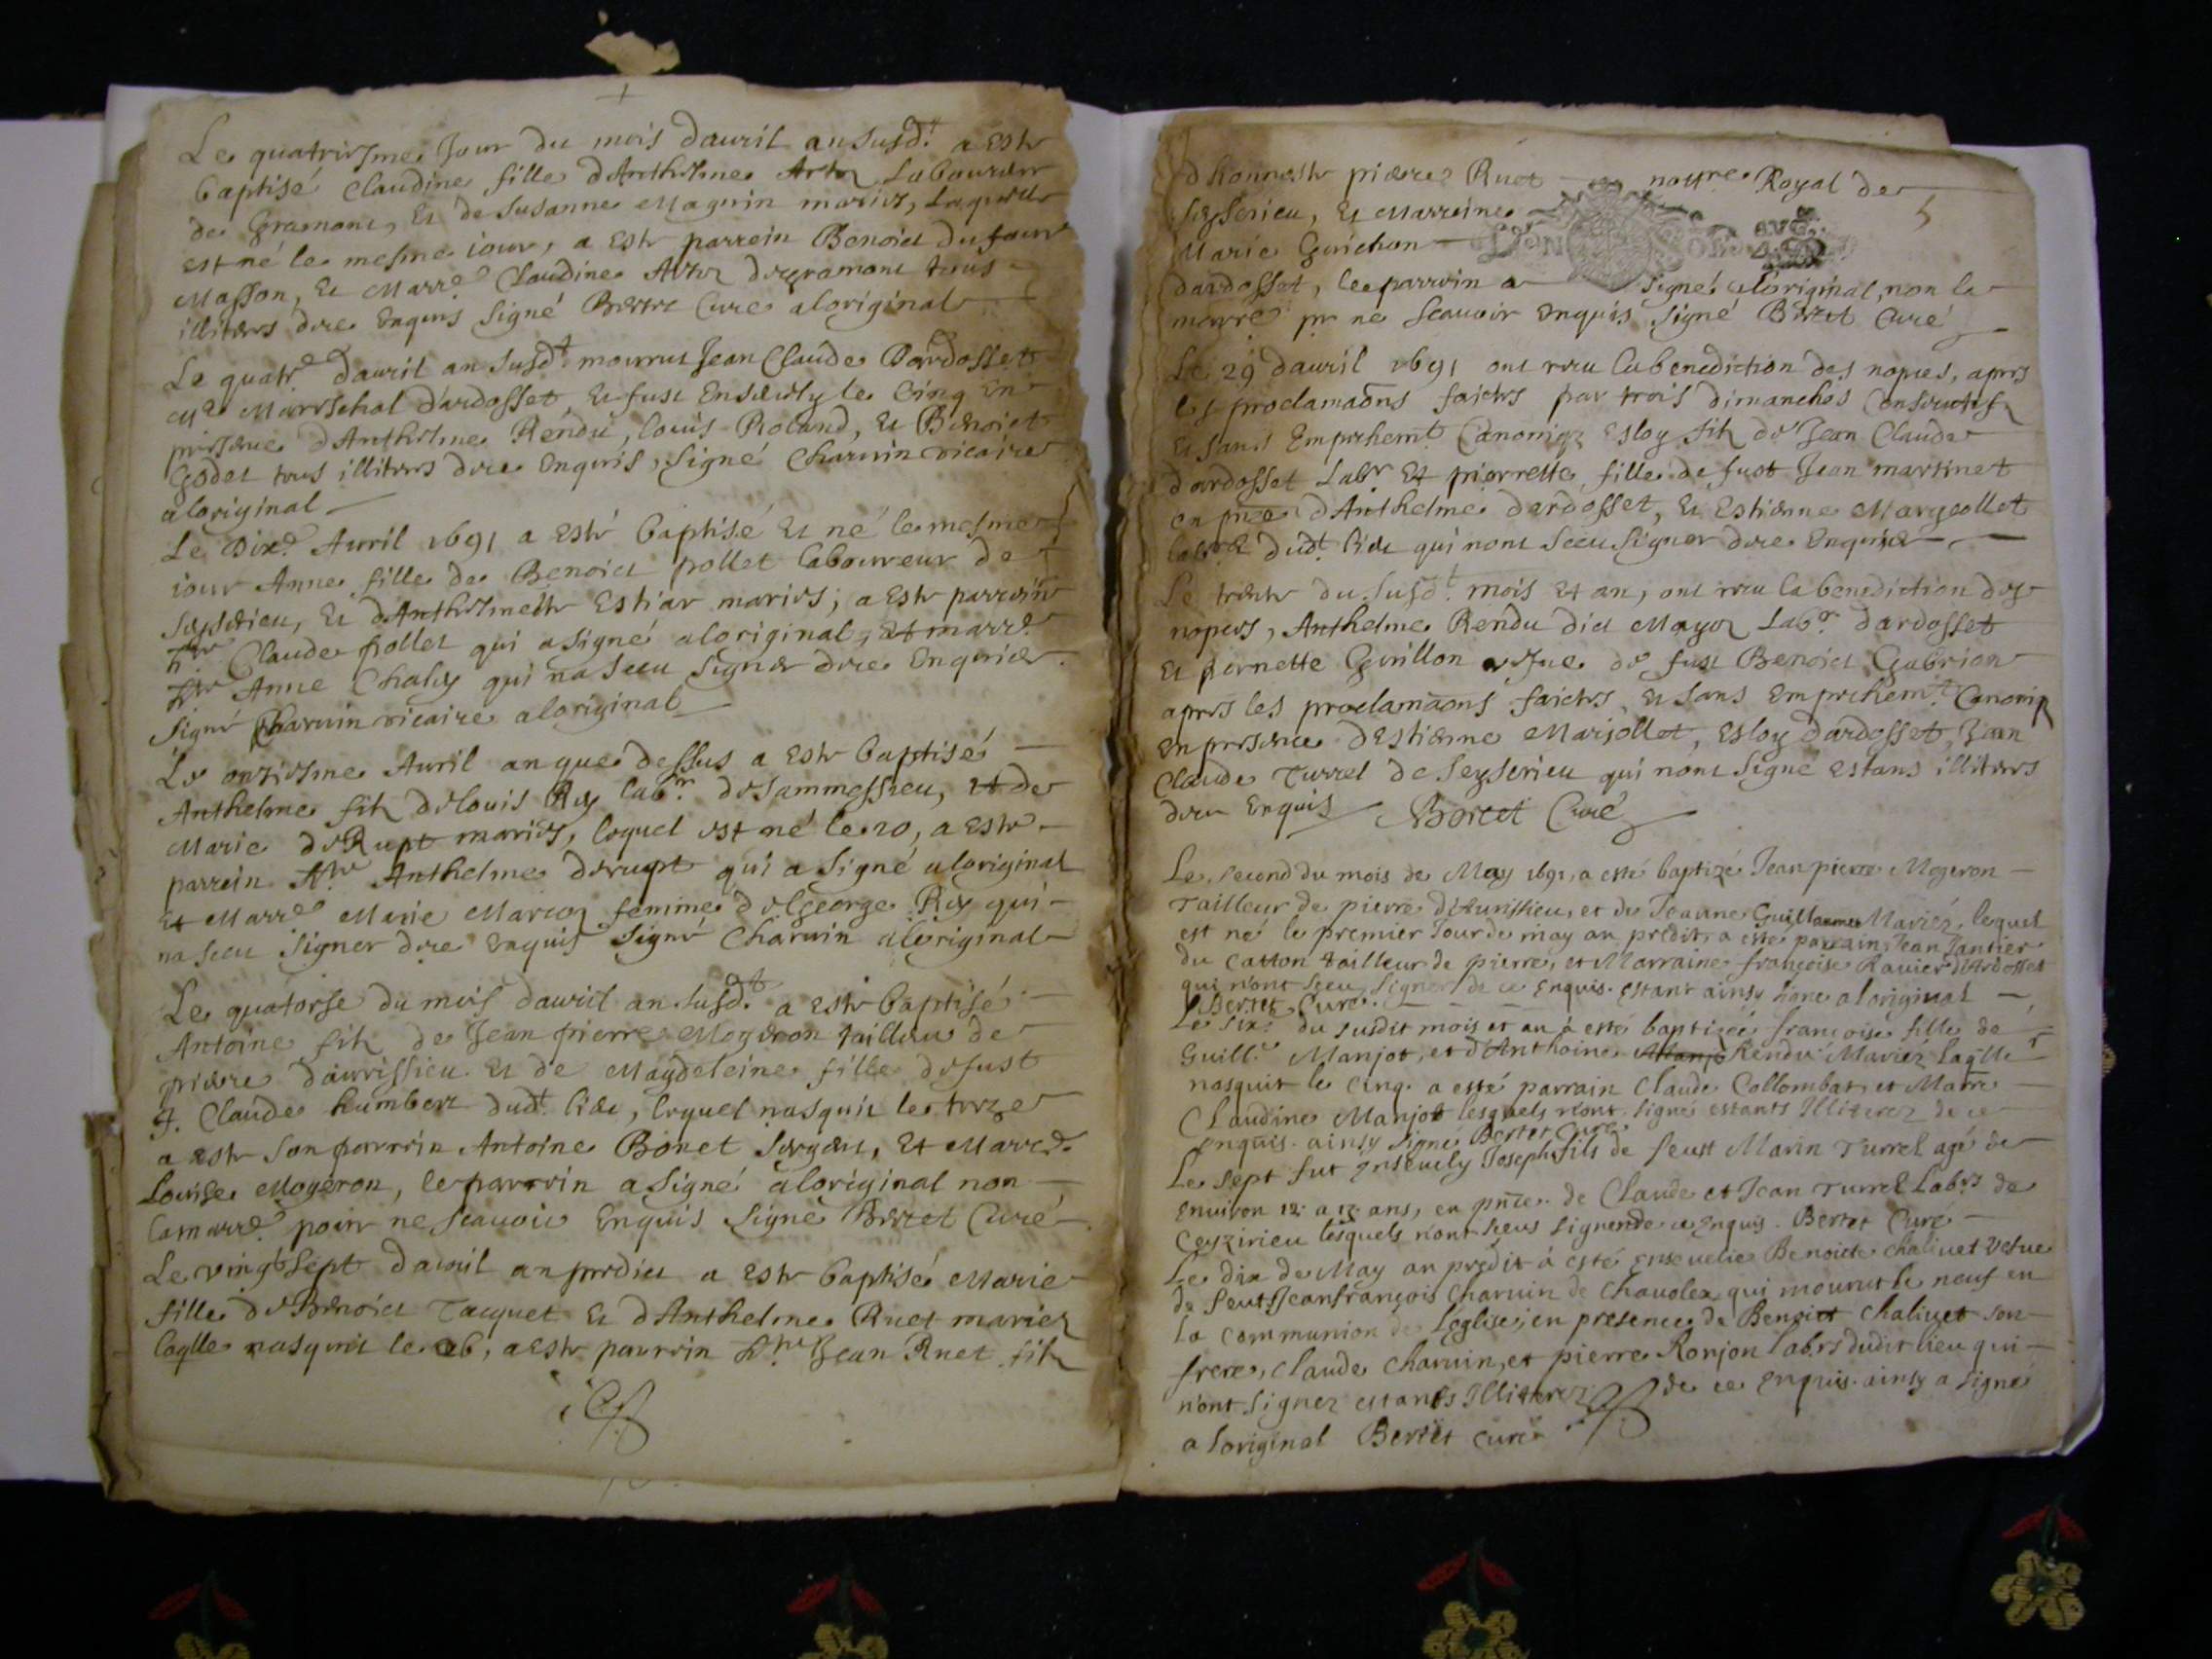 Le quatriesme Jour du mois dauril an susd.t a este
baptisé Claudine fille dAnthelme Laboureur
de Gramont, et de Susanne Magnin mariés, Laquelle
est né le mesme iour, a este parrein Benoict du four
Masson, et Marr.e Claudine de gramont tous
illiteres de ce enquis signé Bertet Curé aloriginal
Le quatr.e dauril an susd.t mourut Jean Claude Dardosset
Mareschal dardosset, et fust Ensevely le Cinq En
presence dAnthelme Rendu, louis Roland, et Benoict
Godet tous illiteres de ce Enquis, signé Charuin vicaire
aloriginal
Le Dix.e Auril 1691 a esté baptisé et né le mesme
iour Anne fille de Benoict pollet laboureur de
Seyserieu, et dAnthelmette Estiar mariés, a este parrein
h.te Claude pollet qui a signé aloriginal, et marr.e
h.te Anne Chaley qui na sceu signer de ce Enquise
signé Charuin vicaire aloriginal
Le onziesme Auril an que dessus a este baptisé
Anthelme fils de louis Rey lab.r de sammessieu, et de
Marie de Rupt mariés, lequel est né le 10, a este
parrein h.te Anthelme derupt qui a signé aloriginal
Et Marr.e Marie Marcoz femme de George Rey qui
na sceu signer de ce enquis signé Charuin aloriginal
Le quatorse du mois dauril an susd.t a este baptisé
Antoine fils de Jean pierre Mogeron tailleur de
pierre daurissieu et de Magdeleine fille de fust
Claude humbert dud.t lieu, lequel nasquit le treze
a este son parrein Antoine Bonet sergent, et Marr.e
Louise Mogeron, le parrein a signé aloriginal non
la marr.e pour ne scauoir Enquis signé Bertet Curé
Le vingt sept dauril an predict a este baptisé Marie
fille de Benoict Tacquet et dAnthelme Ruet mariez
laqlle nasquit le 26, a este parrein h.te Jean Ruet fils
dhonneste pierre Ruet nottre Royal de
Seyserieu, et Marreine
5
Marie Guichon
dardosset, le parrein a signé aloriginal, non la
marre pr ne scauoir enquis signé Bertet Curé
Le 29 dauril 1691 ont receu la benediction des nopces, apres
les proclamaons faictes par trois dimanches Consecutifs
et sans Empechem.t Canoniq Esloy fils de Jean Claude
dardosset Lab.r et pierrette fille de fust Jean martinet
en pnce dAnthelme dardosset, et Estienne Margeollet
lab.rs dud.t lieu qui nont sceu signer de ce Enquise
Le trente du susd.t mois et an, ont receu la benediction des
nopces, Anthelme Rendu dict Mayoz Lab.r dardosset
et pernette Guillon vefue de fust Benoict Gabrion
apres les proclamaons faictes, et sans empechem.t Canoniq
en presence dEstienne Marjollet, Esloy dardosset, Jean
Claude Turrel de Seyserieu qui nont signé estans illiteres
de ce enquis Bertet Curé
Le second du mois de May 1691, a esté baptizé Jean pierre Mogeron
tailleur de pierre d'Aurissieu, et de Jeanne Guillaume Mariéz, lequel
est né le premier Jour de may an predit, a esté parrain Jean Jantier
du catton tailleur de pierre, et Marraine françoise Rauier d'Ardosset
qui n'ont sceu signer de ce enquis estant ainsy signe a loriginal
Bertet Curé.
Le six.e du susdit mois et an à esté baptizée françoise fille de
Guill.e Manjot, et d'Anthoine Rendu Mariéz laqlle
nasquit le cinq. a esté parrain Claude Collombat, et Marre
Claudine Manjot lesquels n'ont signé estants Illiterez de ce
enquis. ainsy signé Bertet Curé
Le sept fut enseuely Joseph fils de feust Marin Turrel agé de
enuiron 12 a 13 ans, en pnce de Claude et Jean Turrel Labrs de
Ceyzirieu lesquels n'ont sceus signer de ce enquis. Bertet Curé
Le dix de May an predit à esté enseuelie Benoicte Chaliuet vefue
de feut Jean françois Charuin de Chauolex qui mourut le neuf en
la communion de Leglise, en presence de Benoict Chaliuet son
frere, Claude Charuin, et pierre Ronjon labrs dudit lieu qui
n'ont signez estants Illiterez de ce enquis. ainsy a signé
a loriginal Bertet curé